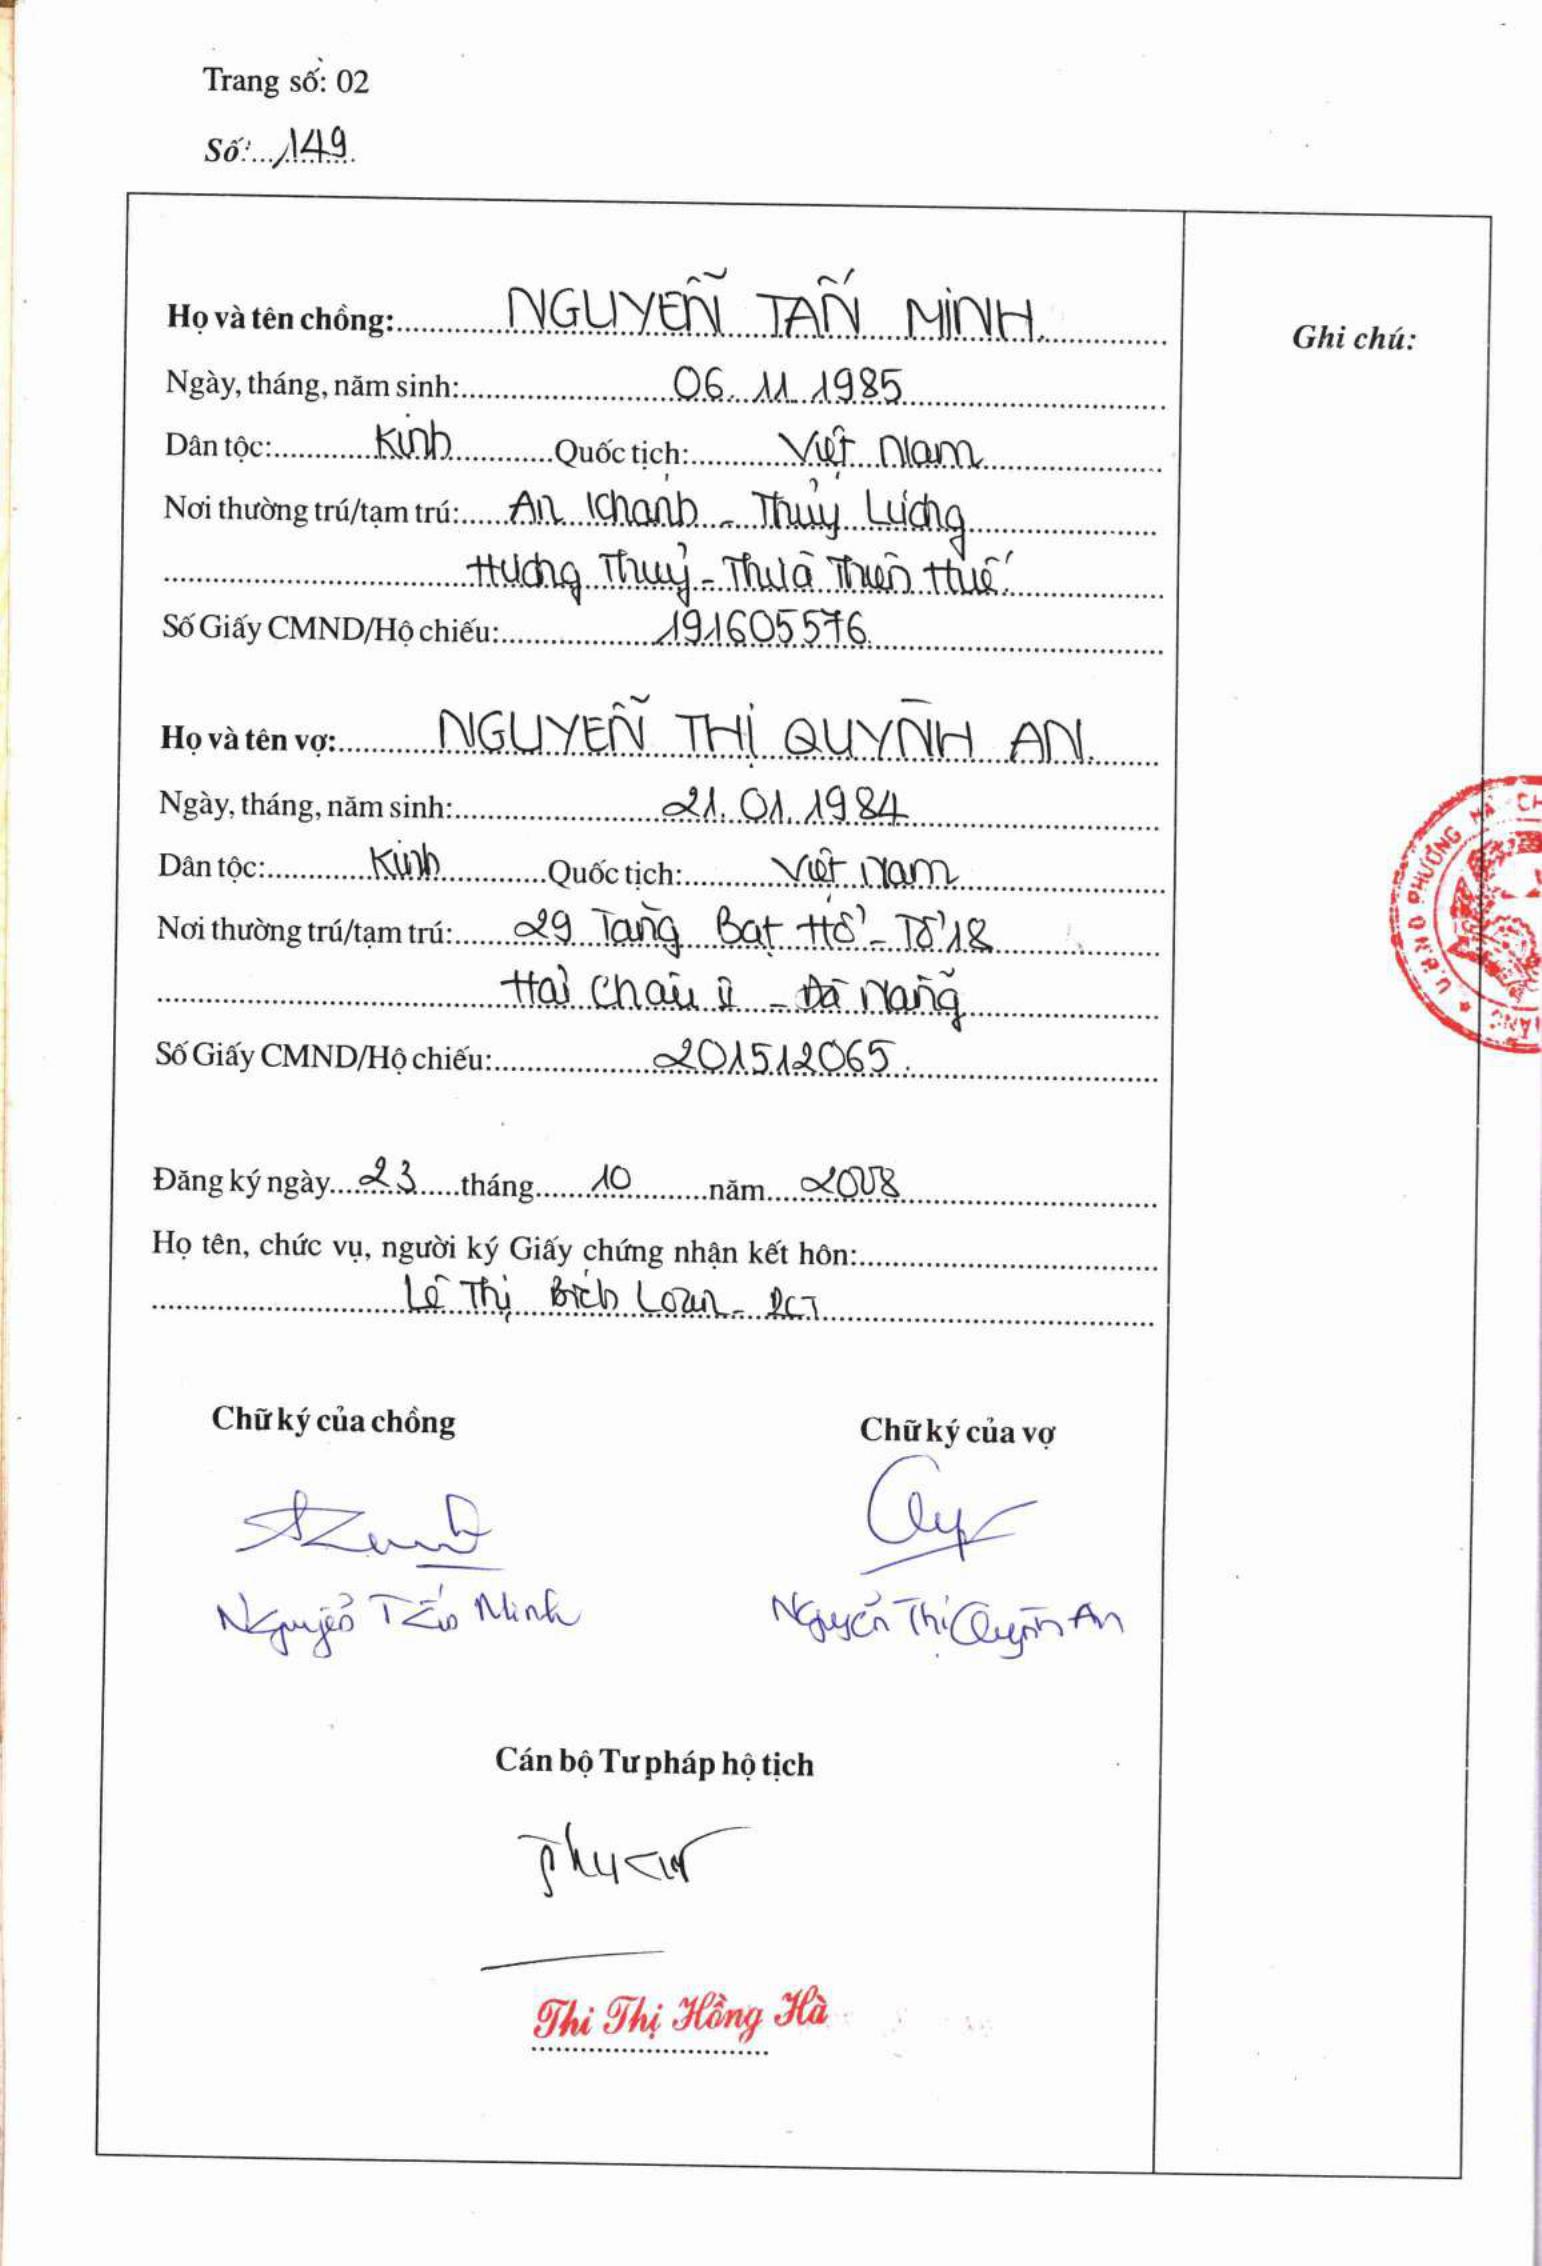 Trang số: 02
Số: 149
Họ và tên chồng: NGUYỄN TẤN MINH
Ghi chú:
Ngày, tháng, năm sinh: 06.11.1985
Dân tộc: Kinh Quốc tịch: Việt Nam
Nơi thường trú/tạm trú: An Khánh - Thủy Lương
Hương Thuỷ - Thừa Thiên Huế.
Số Giấy CMND/Hộ chiếu: 191605576
Họ và tên vợ: NGUYỄN THỊ QUỲNH AN.
Ngày, tháng, năm sinh: 21.01.1984
Dân tộc: Kinh Quốc tịch: Việt Nam
Nơi thường trú/tạm trú: 29 Tăng Bạt Hổ - Tổ 18
Hải Châu II - Đà Nẵng
Số Giấy CMND/Hộ chiếu: 201512065.
Đăng ký ngày 23 tháng 10 năm 2008
Họ tên, chức vụ, người ký Giấy chứng nhận kết hôn:
Lê Thị Bích Loan - PCT
Chữ ký của chồng
Chữ ký của vợ
Nguyễn Tấn Minh
Nguyễn Thị Quỳnh An
Cán bộ Tư pháp hộ tịch
Thi Thị Hồng Hà
U.B.N.D PHƯỜNG